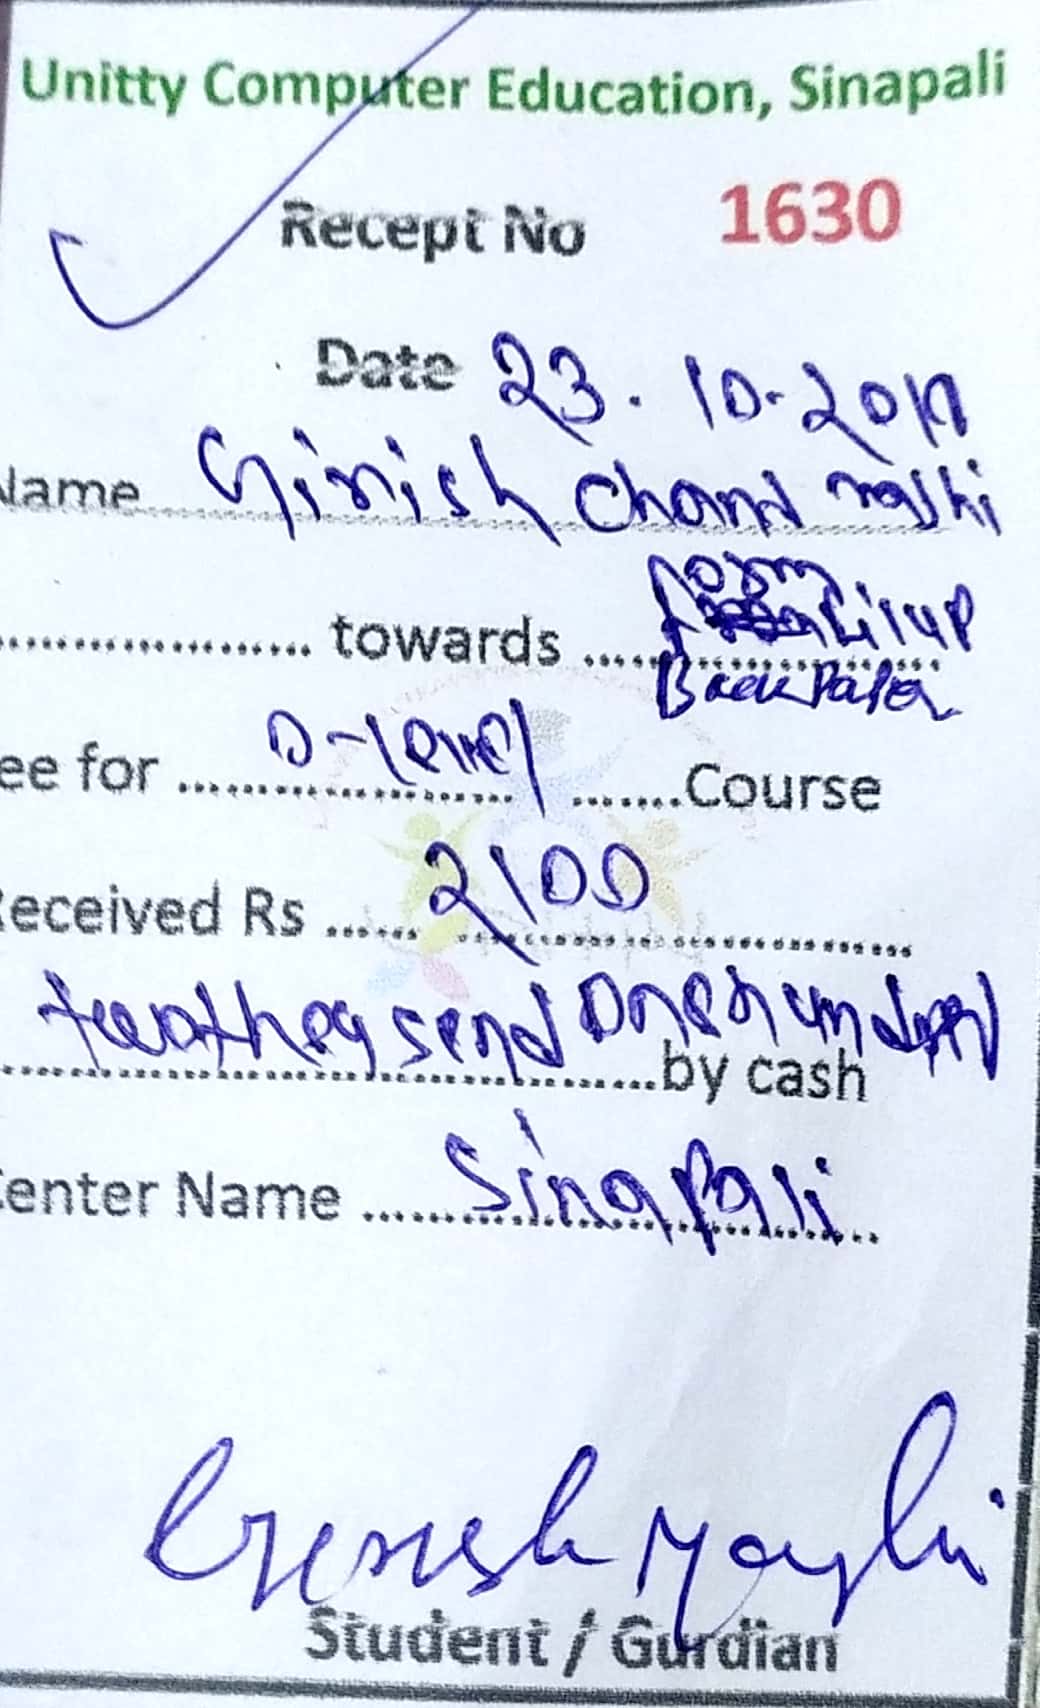 Unitty Computer Education, Sinapali
Recept No 1630
Date 23.10-2017
Name Girish Chand majhi
towards form filup
Back Paper
ee for O-level Course
Received Rs 2100
twothousend Onehundred
by cash
Center Name Sinapali
Girish Majhi
Student / Gurdian